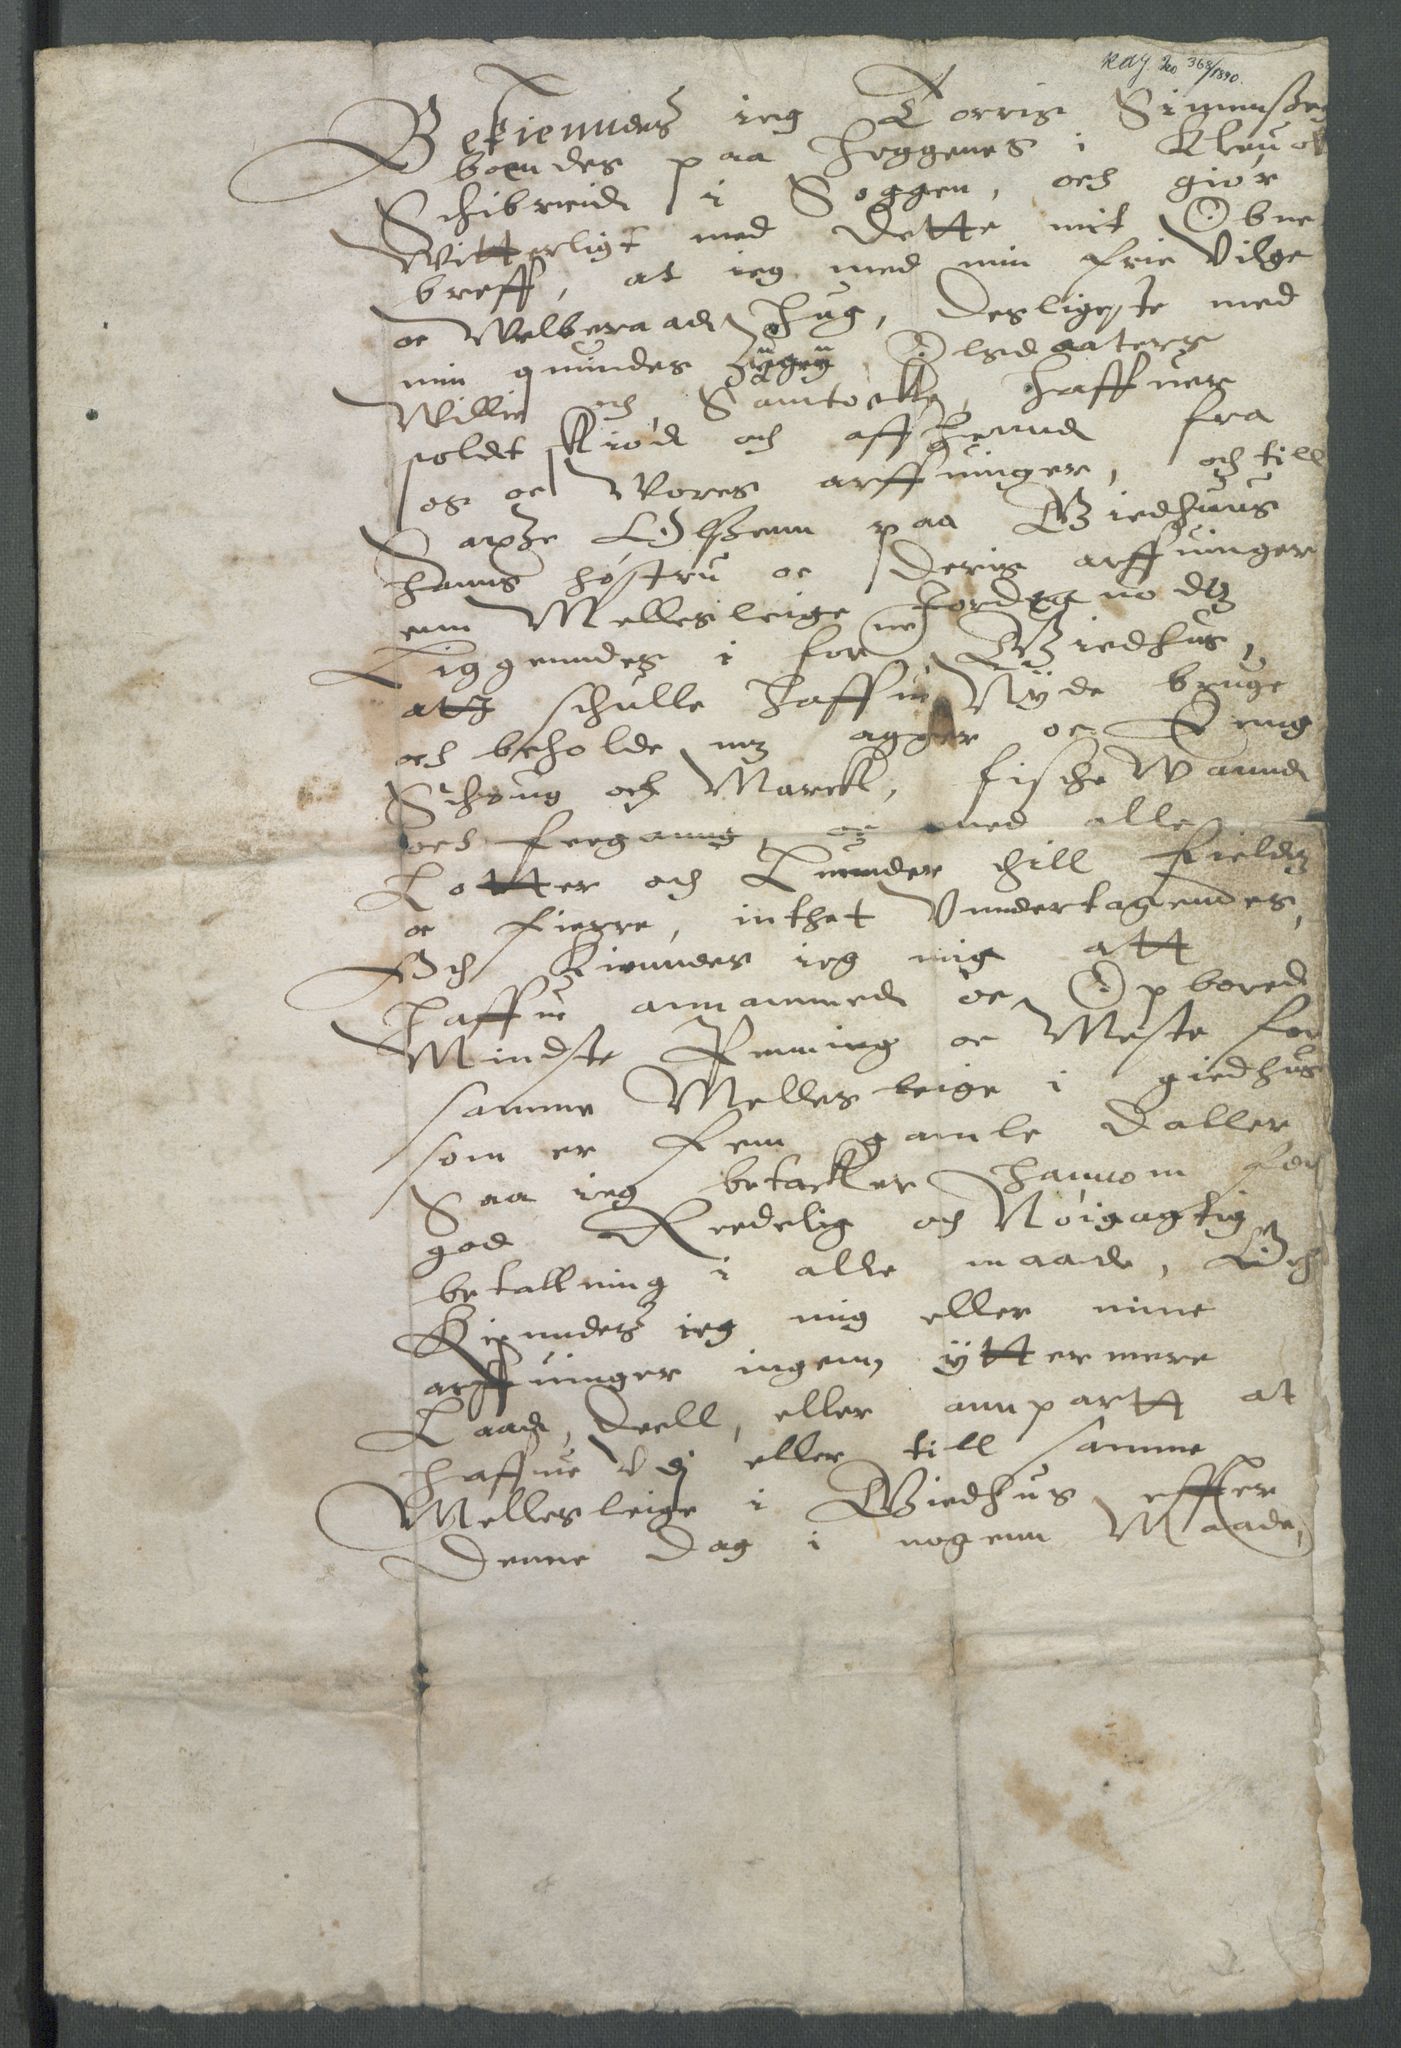 Kdg. No 368/1890.
Bekiennder ieg Torris Simennßøn
boendes paa Hoggenes i
Schibreide i Soggen, och giør
Witterligt med dette mit Obne
breff, at ieg med min frie Vilge
oc Welberaad Hug, desligeste med
min quindes Olsdaaters
Willie och Samtøcke, haffuer
soldt Kiød och affhennd fra
os oc Wores arffuinger, och till
Olssenn paa Giedhuus
hanns høstru oc deris arffuinger
enn Mellesleige Jorder no
Liggenndes i forne Giedhus,
att schulle haffue Nyde bruge
och beholde mz agger oc Enng
Schoug och Marck, fische Wannd
och feegang, oc med alle
Lotter och Lunder thill fields
oc fierre, inthet Unndertagendes,
Och Kiennder ieg mig att
haffue annammed oc Opbored
Mindste Penning oc Meste for
samme Mellesleige i giedhus
som er fem gamle Daller,
Saa ieg betacker hannom for
god Reedelig och Nøigagtig
betallning i alle maade, Och
Kiennder ieg mig eller mine
arffuinger ingenn ÿttermere
Laad, deell, eller annpartt at
haffue Udj eller till samme
Mellesleige i Giedhus effter
Denne Dag i nogenn Maade,